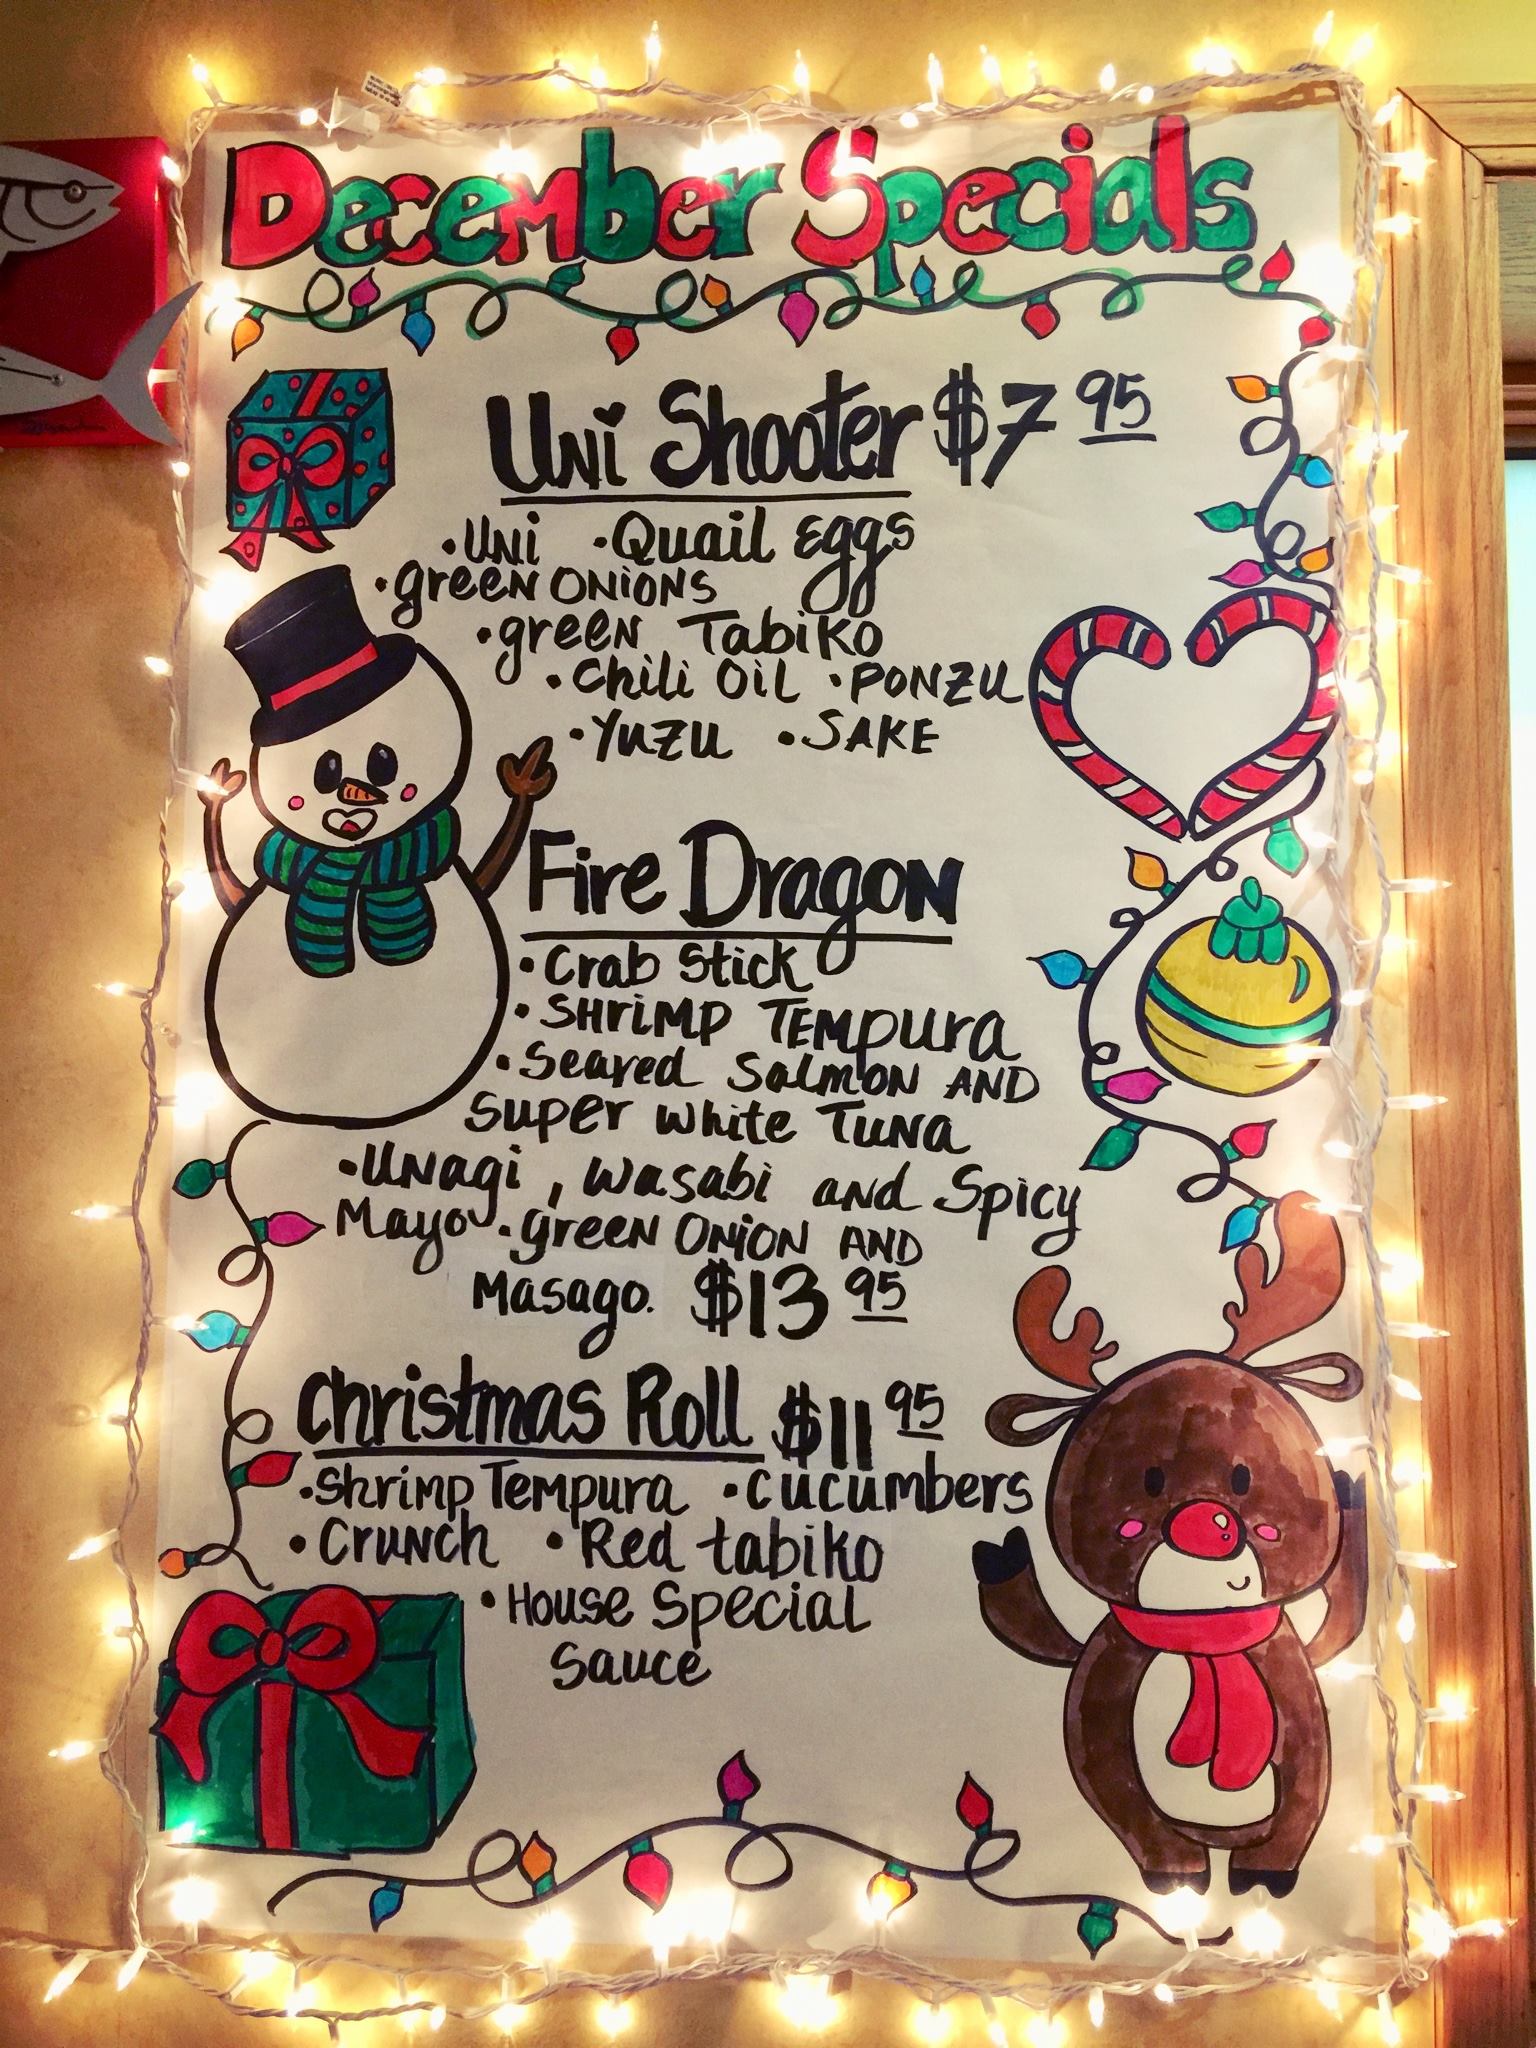 December Specials
Uni Shooter $7 95
• Uni • Quail Eggs
• green onions
• green Tabiko
• Chili Oil • PONZU
• YUZU • SAKE
Fire Dragon
• Crab Stick
• SHRIMP TEMPURA
• Seared Salmon AND
Super white Tuna
• Unagi, wasabi and Spicy
Mayo • green ONION AND
Masago. $13 95
Christmas Roll $11 95
• Shrimp Tempura • Cucumbers
• Crunch • Red tabiko
• House Special
Sauce